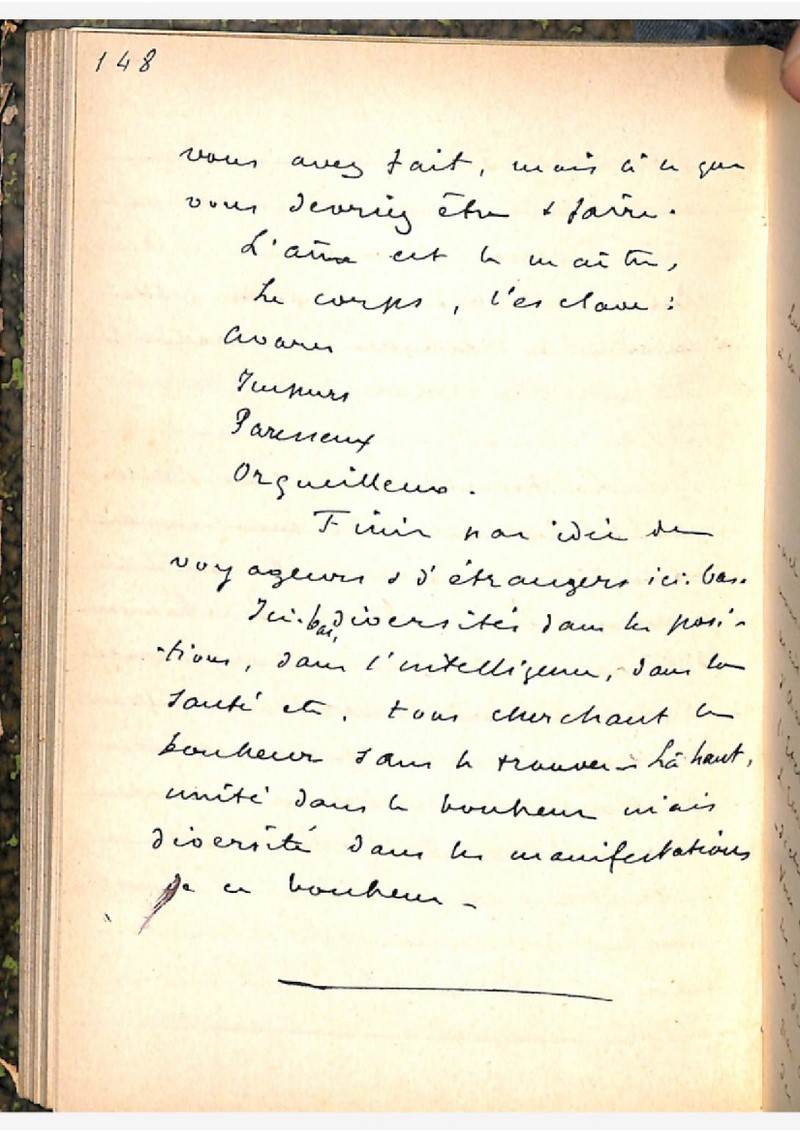 148
vous avez fait, mais à ce que
vous devriez être & faire.
L'âme est le maître,
Le corps, l'esclave :
Avares
Impurs
Paresseux
Orgueilleux.
Finir par idée de
voyageurs & d'étrangers ici-bas.
Ici-bas, diversités dans les posi-
-tions, dans l'intelligence, dans la
santé etc. tous cherchant le
bonheur sans le trouver – Là haut,
unité dans le bonheur mais
diversité dans les manifestations
de ce bonheur –